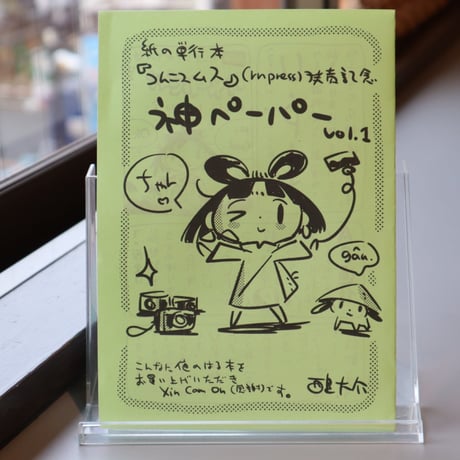 紙の単行本
『コムニスムス』(impress)発売記念
神ペーパー
vol.1
gâu.
こんなに値のはる本を
お買い上げいただき
Xin Cảm Ơn (感謝)です。
西島大介